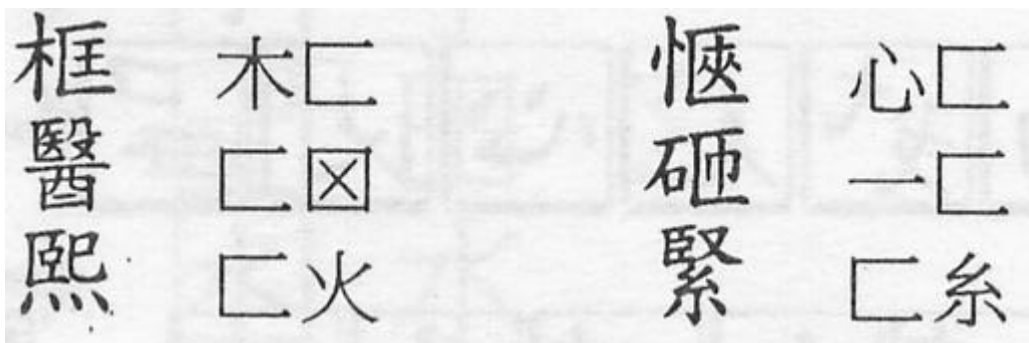 框 木匚 愜 心匚
醫 匚☒ 砸 一匚
熙 匚火 緊 匚糸